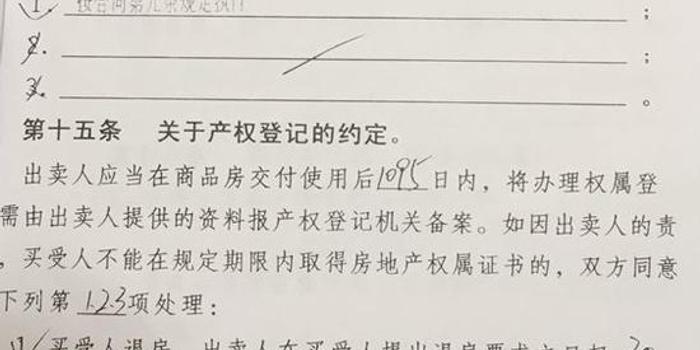 1. 按合同第九条规定执行;
2. ;
3. 。
第十五条 关于产权登记的约定。
出卖人应当在商品房交付使用后1095日内，将办理权属登
需由出卖人提供的资料报产权登记机关备案。如因出卖人的责
，买受人不能在规定期限内取得房地产权属证书的，双方同意
下列第1.2.3项处理：
1、买受人退房，出卖人在买受人提出退房要求之日起30